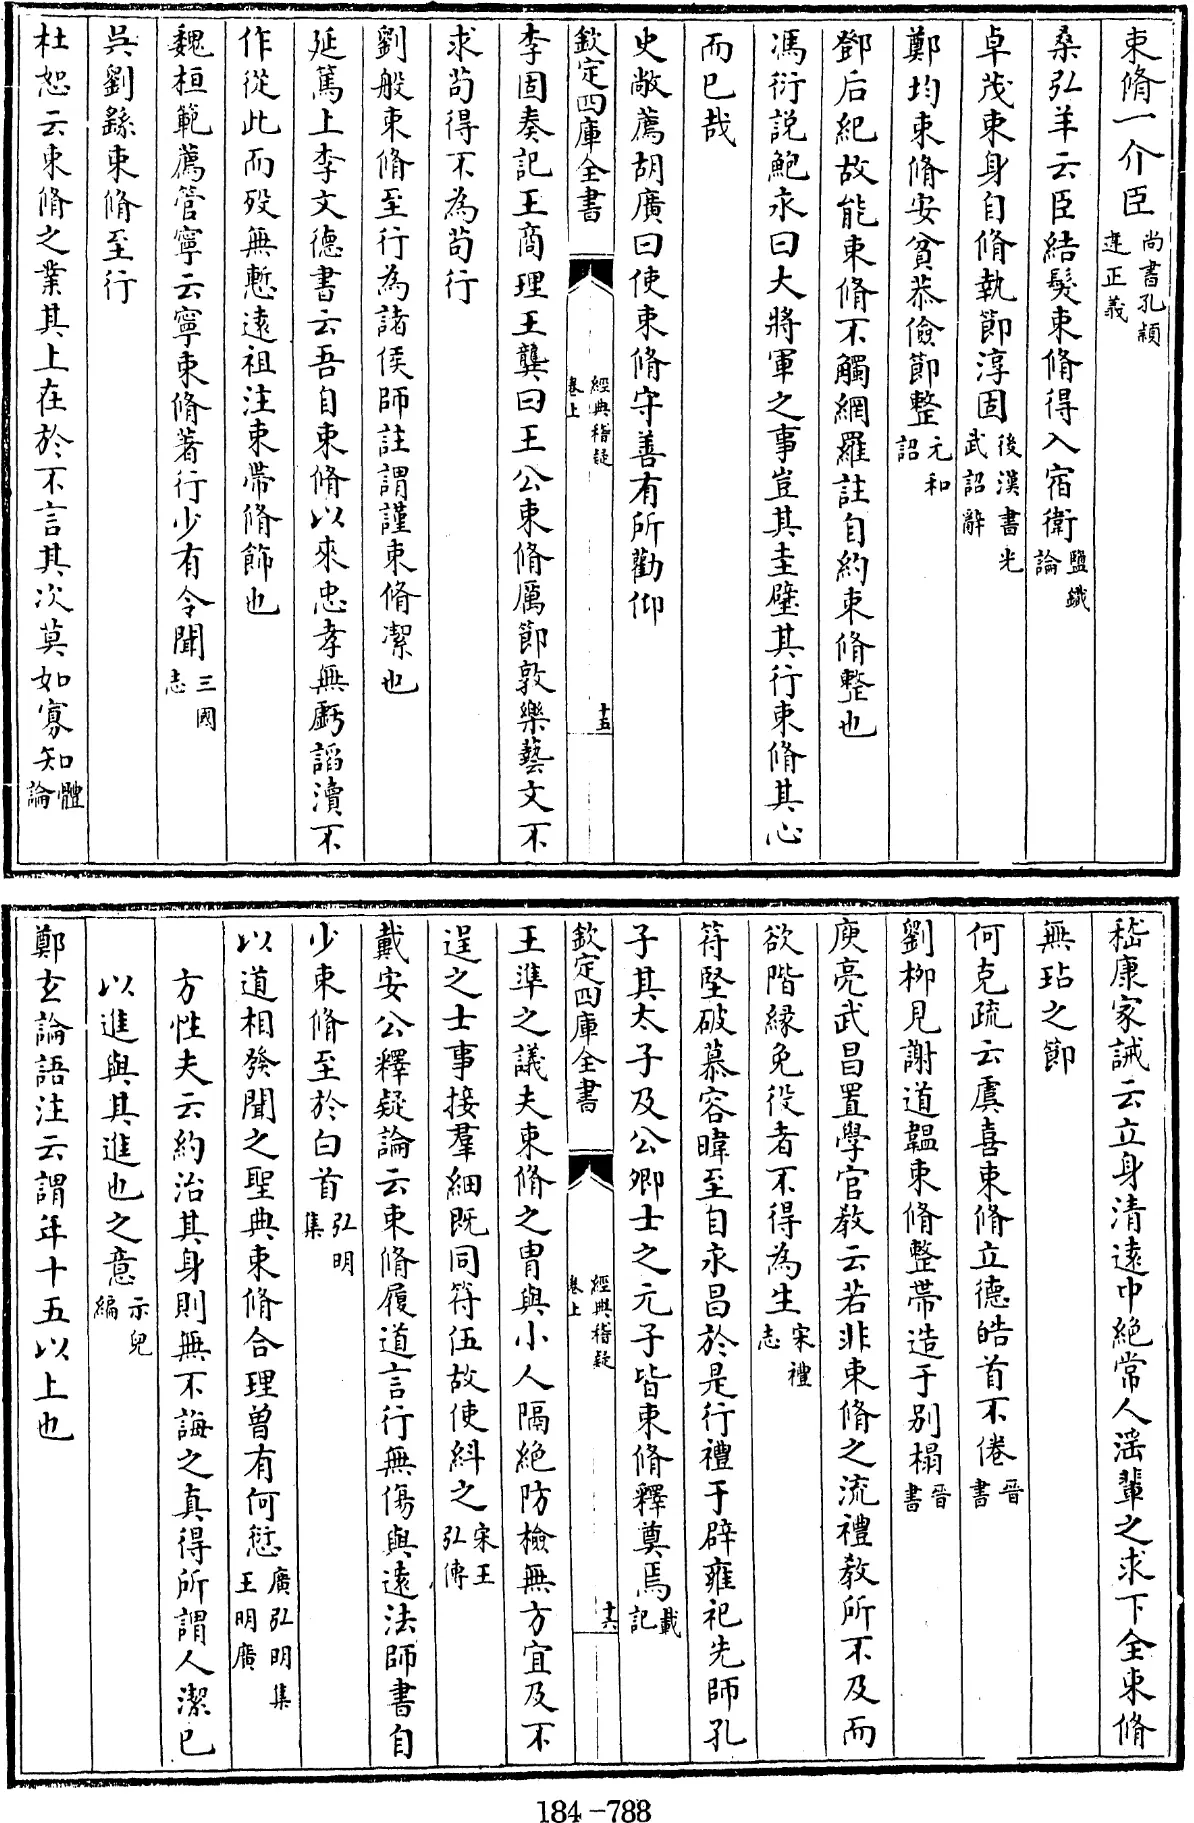 束脩一介臣尚書孔穎達正義
桑弘羊云臣結髮束脩得入宿衛鹽鐵論
卓茂束身自脩執節淳固後漢書光武詔辭
鄭均束脩安貧恭儉節整元和詔
鄧后紀故能束脩不觸網羅註自約束脩整也
馮衍說鮑永曰大將軍之事豈其圭璧其行束脩其心
而已哉
史敞薦胡廣曰使束脩守善有所勸仰
欽定四庫全書 經典稽疑卷上 十五
李固奏記王商理王龔曰王公束脩厲節敦樂藝文不
求茍得不為茍行
劉般束脩至行為諸侯師註謂謹束脩潔也
延篤上李文德書云吾自束脩以來忠孝無虧謟瀆不
作從此而歿無慙遠祖注束帶脩飾也
魏桓範薦管寧云寧束脩著行少有令聞三國志
吳劉繇束脩至行
杜恕云束脩之業其上在於不言其次莫如寡知體論
嵇康家誡云立身清遠巾絶常人滛輩之求下全束脩
無玷之節
何充疏云虞喜束脩立德皓首不倦晉書
劉柳見謝道韞束脩整帶造于别榻晉書
庾亮武昌置學官教云若非束脩之流禮教所不及而
欲階緣免役者不得為生宋禮志
苻堅破慕容暐至自永昌於是行禮于辟雍祀先師孔
子其太子及公卿士之元子皆束脩釋奠焉載記
欽定四庫全書 經典稽疑卷上 十六
王準之議夫束脩之胄與小人隔絶防檢無方宜及不
逞之士事接羣細既同符伍故使糾之宋王弘傳
戴安公釋疑論云束脩履道言行無傷與遠法師書自
少束脩至於白首弘明集
以道相發聞之聖典束脩合理曽有何愆廣弘明集王明廣
方性夫云約治其身則無不誨之真得所謂人潔已
以進與其進也之意示兒編
鄭玄論語注云謂年十五以上也
184-788